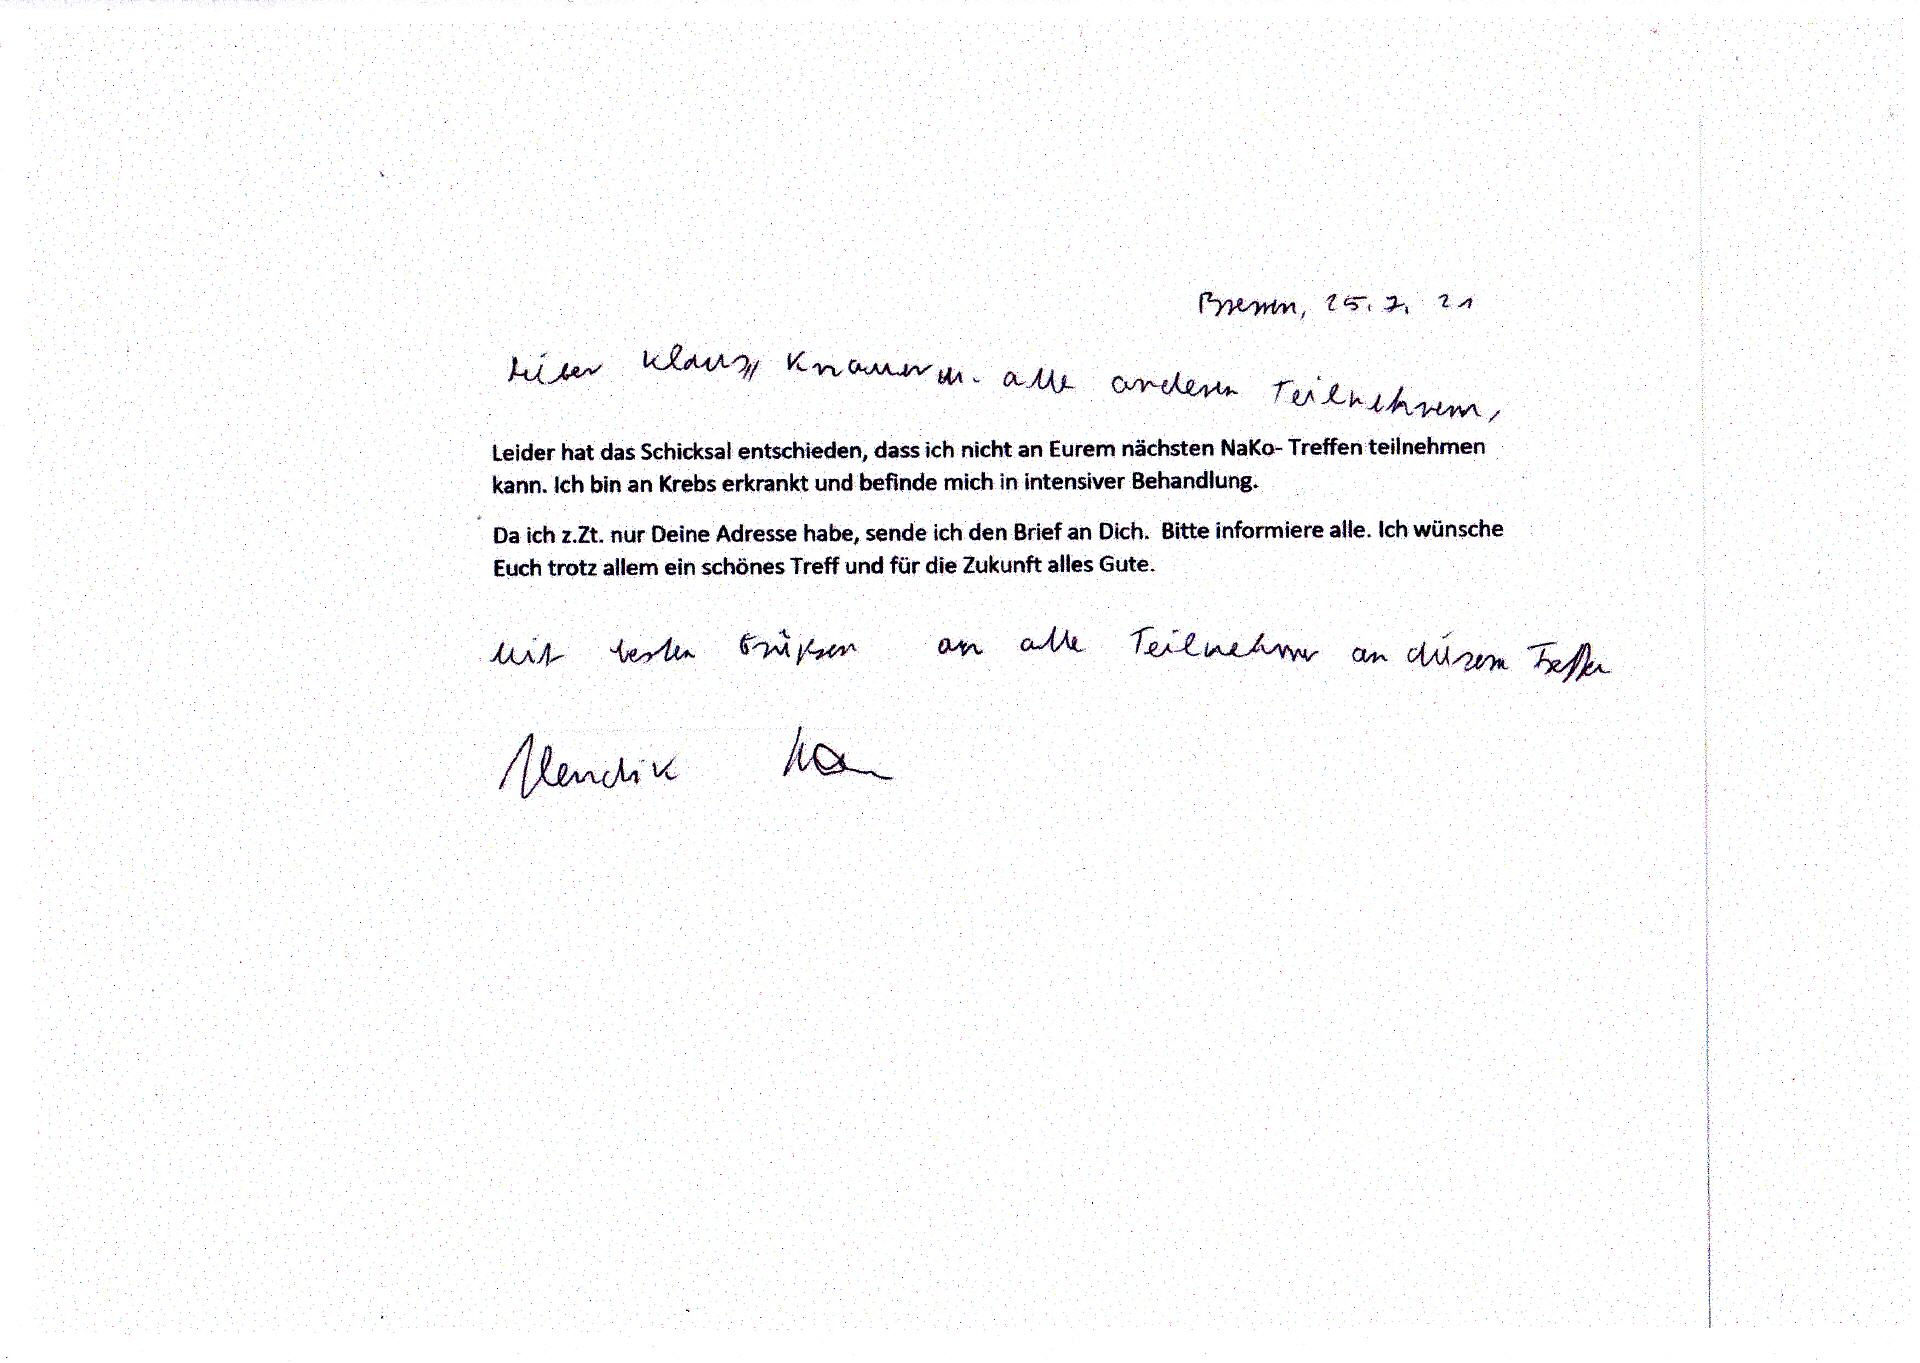 Bremen, 25.7.21
Lieber Klaus, Knauer u. alle anderen Teilnehmern,
Leider hat das Schicksal entschieden, dass ich nicht an Eurem nächsten NaKo- Treffen teilnehmen
kann. Ich bin an Krebs erkrankt und befinde mich in intensiver Behandlung.
Da ich z.Zt. nur Deine Adresse habe, sende ich den Brief an Dich. Bitte informiere alle. Ich wünsche
Euch trotz allem ein schönes Treff und für die Zukunft alles Gute.
Mit besten Grüßen an alle Teilnehmer an diesem Treffen